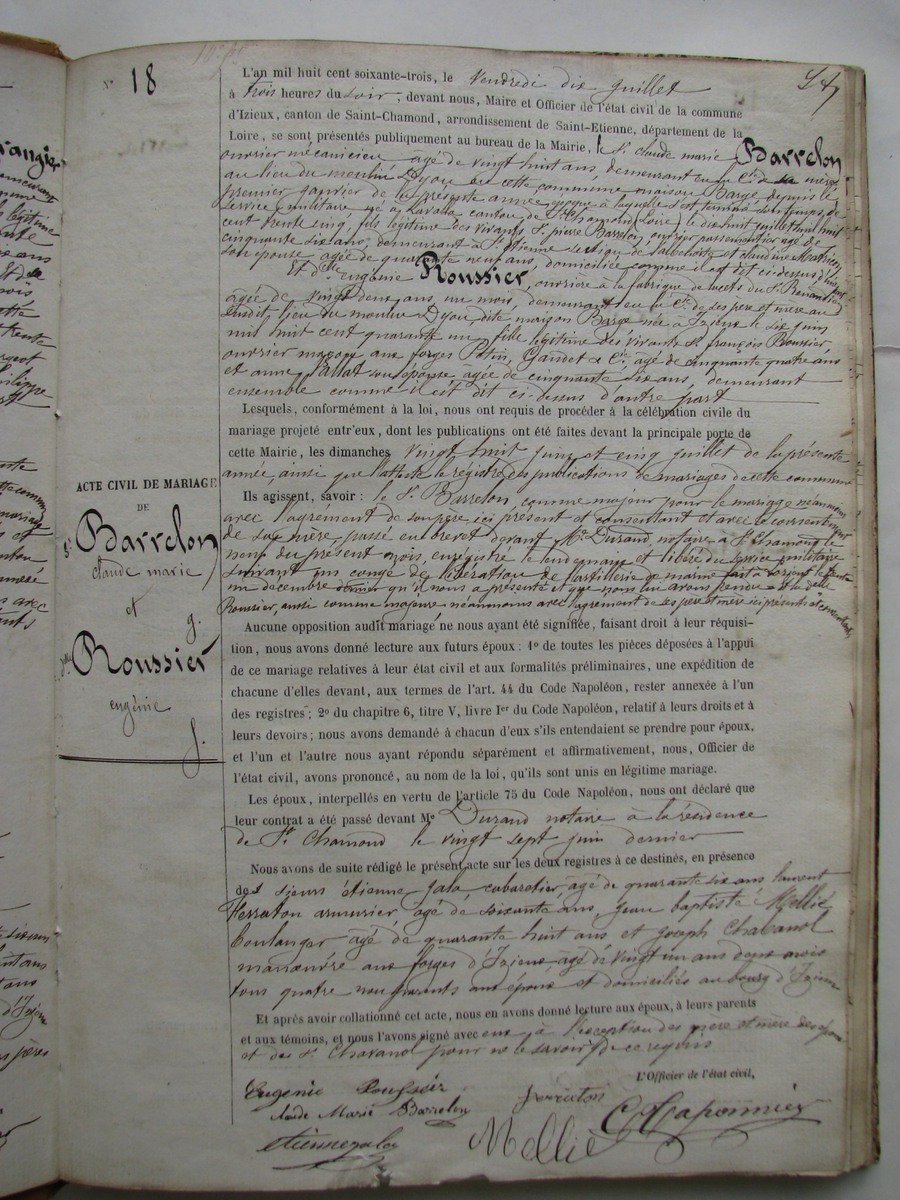 N° 18
L'an mil huit cent soixante-trois, le Vendredi dix Juillet
à trois heures du soir, devant nous, Maire et Officier de l'état civil de la commune
d'Izieux, canton de Saint-Chamond, arrondissement de Saint-Etienne, département de la
Loire, se sont présentés publiquement au bureau de la Mairie, le Sr. claude marie Barrelon
ouvrier mécanicien âgé de vingt huit ans, demeurant en la Cie de sa mère
au lieu du moulin Dyou en cette commune maison Barge depuis le
premier janvier de la présente année époque à laquelle s'est terminé son temps de
service militaire né à Lavalla canton de St. Chamond (Loire) le dix huit juillet mil huit
cent trente cinq, fils légitime des vivants Sr. pierre Barrelon, ouvrier passementier âgé de
cinquante six ans, demeurant à St. Etienne et claudine Matricon
son épouse âgée de quarante neuf ans, domiciliée comme il est dit ci-dessus d'une part
Et dlle eugénie Roussier, ouvrière à la fabrique de lacets du Sr.
âgée de vingt deux ans, un mois, demeurant en la Cie de ses père et mère au
susdit lieu du moulin Dyou, dite maison Barge née à Izieux le six juin
mil huit cent quarante un, fille légitime des vivants Sr. françois Roussier
ouvrier maçon aux forges Petin, Gaudet & Cie, âgé de cinquante quatre ans
et anne Pallat son épouse âgée de cinquante six ans, demeurant
ensemble comme il est dit ci-dessus d'autre part
Lesquels, conformément à la loi, nous ont requis de procéder à la célébration civile du
mariage projeté entr'eux, dont les publications ont été faites devant la principale porte de
cette Mairie, les dimanches vingt huit juin et cinq juillet de la présente
année, ainsi que l'atteste le registre des publications de mariages de cette commune
ACTE CIVIL DE MARIAGE
DE
Sr. Barrelon
claude marie
et
g.
dlle Roussier
eugénie
f.
Ils agissent, savoir : le Sr. Barrelon, comme majeur pour le mariage néanmoins
avec l'agrément de son père ici présent et consentant et avec le consentement
de sa mère, passé en brevet devant Me. Durand, notaire à St. Chamond le
neuf du présent mois, enregistré le lendemain et libéré du service militaire
suivant un congé de libération de l'artillerie de marine fait à Lorient le trente
un décembre dernier qu'il nous a présenté et que nous lui avons rendu et la dlle
Roussier, aussi comme majeure néanmoins avec l'agrément de ses père et mère ici présents et consentants
Aucune opposition audit mariage ne nous ayant été signifiée, faisant droit à leur réquisi-
tion, nous avons donné lecture aux futurs époux : 1° de toutes les pièces déposées à l'appui
de ce mariage relatives à leur état civil et aux formalités préliminaires, une expédition de
chacune d'elles devant, aux termes de l'art. 44 du Code Napoléon, rester annexée à l'un
des registres ; 2° du chapitre 6, titre V, livre Ier du Code Napoléon, relatif à leurs droits et à
leurs devoirs ; nous avons demandé à chacun d'eux s'ils entendaient se prendre pour époux,
et l'un et l'autre nous ayant répondu séparément et affirmativement, nous, Officier de
l'état civil, avons prononcé, au nom de la loi, qu'ils sont unis en légitime mariage.
Les époux, interpellés en vertu de l'article 75 du Code Napoléon, nous ont déclaré que
leur contrat a été passé devant Me Durand notaire à la résidence
de St. Chamond le vingt sept juin dernier
Nous avons de suite rédigé le présent acte sur les deux registres à ce destinés, en présence
des sieurs étienne jala, cabaretier âgé de quarante six ans laurent
Ferraton armurier, âgé de soixante ans, jean baptiste Mellié
boulanger âgé de quarante huit ans et joseph Chavanol
manœuvre aux forges d'Izieux âgé de vingt un ans deux mois
tous quatre non parents aux époux et domiciliés au bourg d'Izieux
Et après avoir collationné cet acte, nous en avons donné lecture aux époux, à leurs parents
et aux témoins, et nous l'avons signé avec eux à l'exception des père et mère des époux
et du Sr. Chavanol pour ne le savoir de ce requis
L'Officier de l'état civil,
Eugenie Roussier
claude Marie Barrelon
ferraton
etienne jala
Mellié